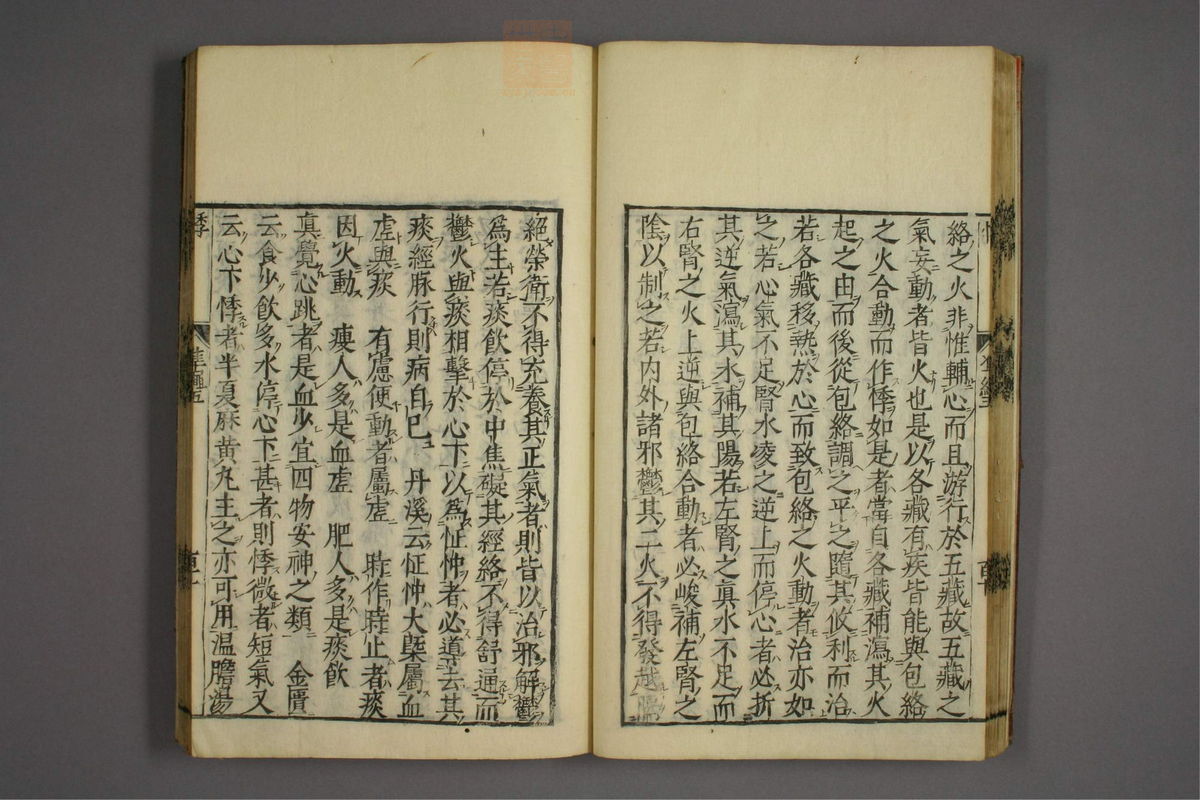 絡之火非惟輔心而且游行於五藏故五藏之
氣妄動者皆火也是以各藏有疾皆能與包絡
之火合動而作悸如是者當自各藏補瀉其火
起之由而後從包絡調之平之隨其攸利而治
若各藏移熱於心而致包絡之火動者治亦如
之若心氣不足腎水凌之逆上而停心者必折
其逆氣瀉其水補其陽若左腎之眞水不足而
右腎之火上逆與包絡合動者必峻補左腎之
陰以制之若内外諸邪鬱其二火不得發越隔
絕榮衛不得充養其正氣者則皆以治邪解鬱
爲主若痰飲停於中焦礙其經絡不得舒通而
鬱火與痰相擊於心下以爲怔忡者必導去其
痰經脉行則病自已　丹溪云怔忡大槩屬血
虚與痰　有慮便動者屬虚　時作時止者痰
因火動　瘦人多是血虚　肥人多是痰飲
眞覺心跳者是血少宜四物安神之類　金匱
云食少飲多水停心下甚者則悸微者短氣又
云心下悸者半夏麻黄丸主之亦可用温膽湯
悸
準繩